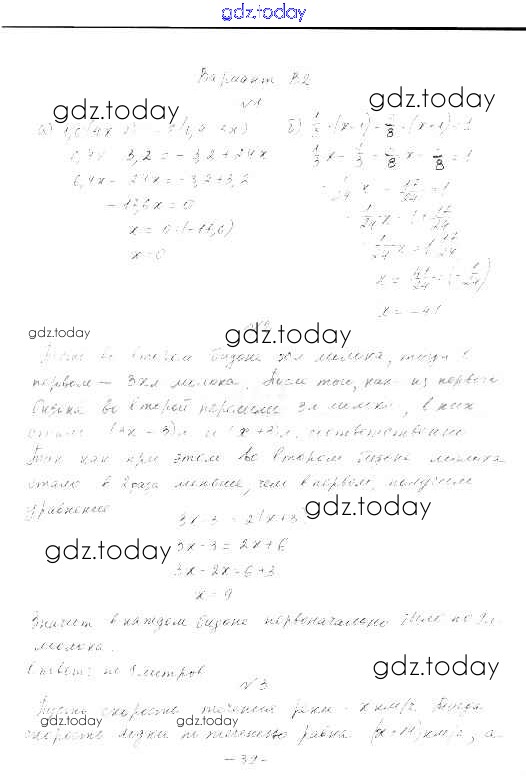 gdz.today
Вариант В2
№1
gdz.today
gdz.today
а)
б) 1/3 · (x-1) - 3/8 · (x+1) = 1
3,2 = -3,2 + 24x
1/3 x - 1/3 - 3/8 x - 3/8 = 1
6,4x - 24x = -3,2 + 3,2
x - 17/24 = 1
-17,6x = 0
x = 1 + 17/24
x = 0 : (-17,6)
1/24 x = 1 17/24
x = 0
x = 41/24 : (-1/24)
x = -41
gdz.today
gdz.today
во втором бидоне x л молока, тогда в
первом — 3x л молока. После того, как из первого
бидона во второй перелили 3 л молока, в них
стало (3x - 3) л и (x + 3) л, соответственно
Так как при этом во втором бидоне молока
стало в 2 раза меньше, чем в первом, получим
уравнение
gdz.today
3x - 3 = 2(x + 3)
gdz.today
3x - 3 = 2x + 6
3x - 2x = 6 + 3
x = 9
Значит в каждом бидоне первоначально было по 9 л
молока.
Ответ: по 9 литров
gdz.today
№3
Пусть скорость течения реки - x км/ч. Тогда
gdz.today
gdz.today
скорость лодки по течению равна км/ч, а
- 39 -